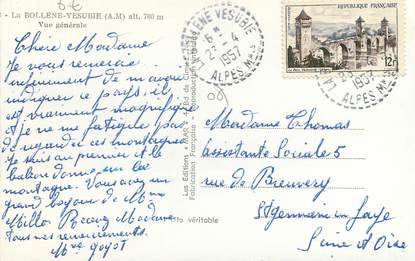 - La BOLLENE-VESUBIE (A.M) alt. 700 m
Vue générale
Chère Madame
Je vous remercie
infiniment de m'avoir
indiquer ce pays, il
est vraiment magnifique
et je ne me fatigue pas
de regarder ces montagnes
Je suis au premier et le
balcon donne sur la
montagne. Vous avez un
grand bonjour de Mme
Millo. Recevez Madame
tous mes remerciements.
Mme Goyot
Les Editions "MAR"
Fabrication Française
Reproduction Interdite
Photo véritable
LA BOLLENE VESUBIE
6H
23 - 4
1957
ALPES MMES
12F
1957
ALPES MMES
Madame Thomas
assistante Sociale 5
rue de Breuvery
St Germain en Laye
Seine et Oise